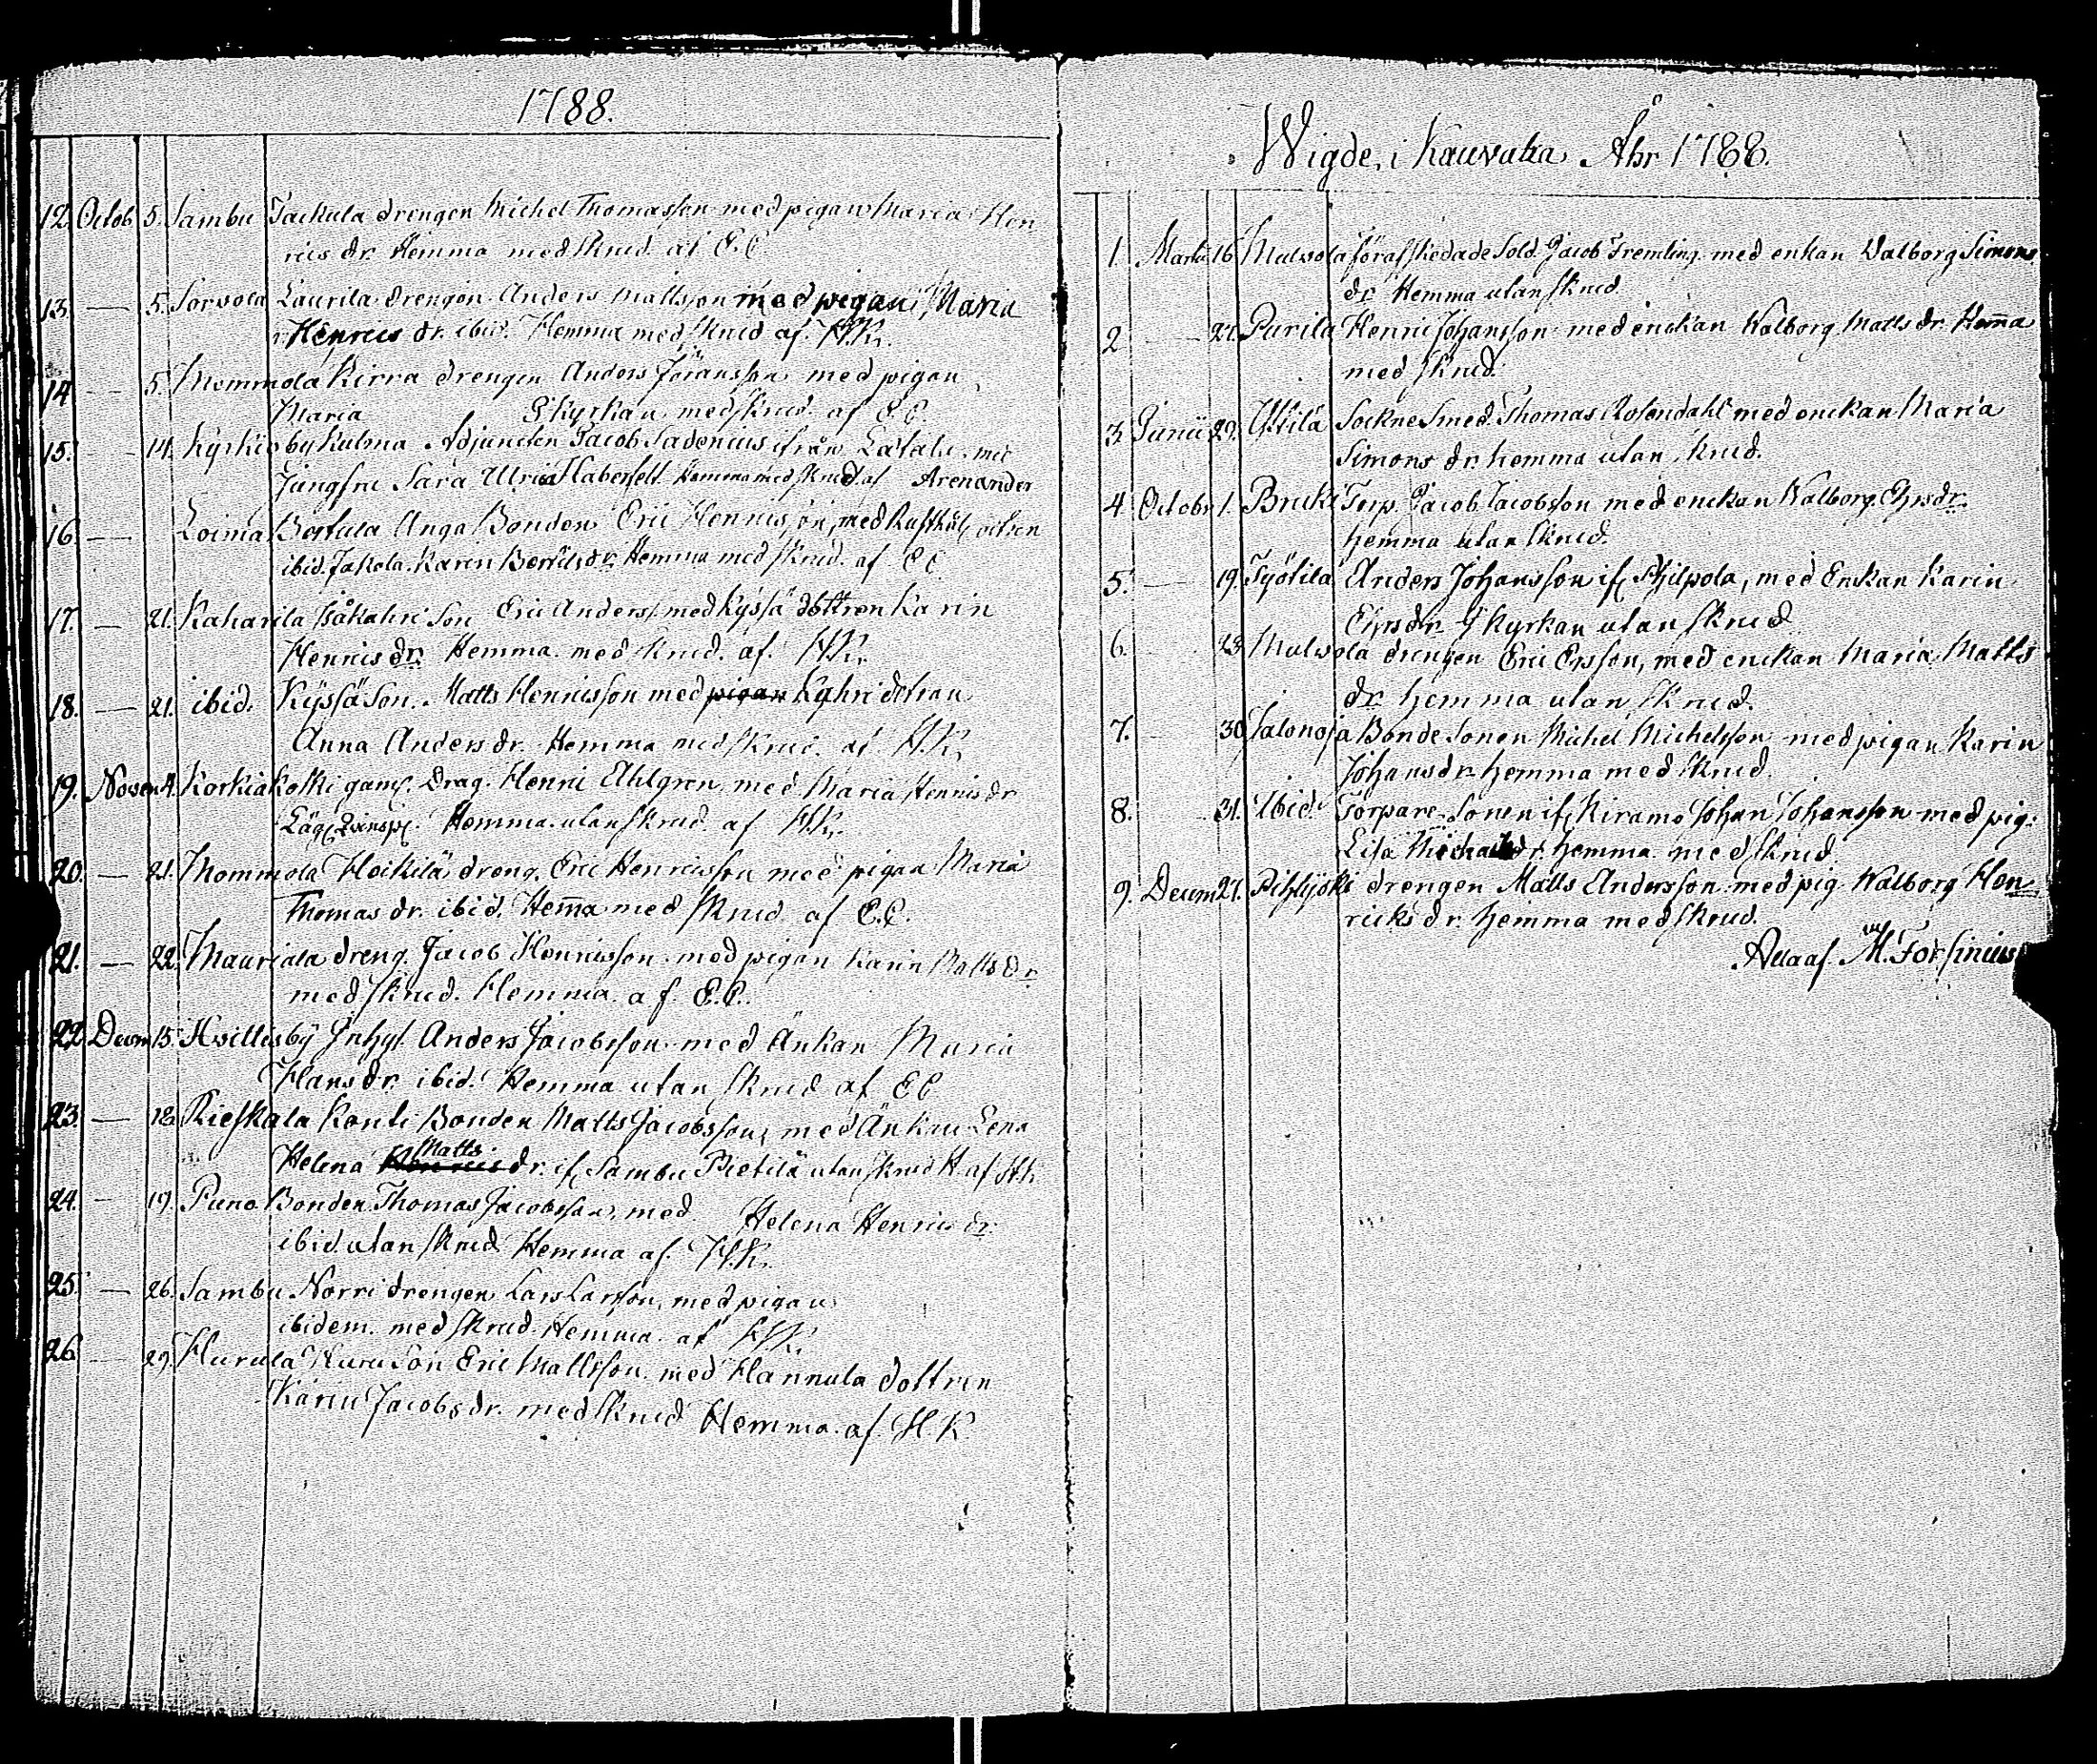 1788.
12. Octob 5. Sambu Jackula drengen Michel Thomasson med pigan Maria Hen
rics dr. Hemma med skrud af E.C
13. — 5. Sorvola Laurila drengen Anders Mattsson med pigan Maria
Henrics dr. ibid. Hemma med skrud af. H.K.
14 — 5. Mommola Kirra drengen Anders Jöransson med pigan
Maria I kyrkan med skrud. af E.C.
15. — 14. Kyrkioby Kulma Adjuncten Jacob Sadenius ifrån Letala med
Jungfru Sara Ulrica Haberfelt Hemma med skrud af Arenander
16 — Loima Bertula Anga Bonden Eric Henricsson, med
ibid. Jakola Karin Bertilsdr. Hemma med skrud. af EC
17. — 21. Kaharila Isåkahri Son Eric Anderss. med Kyssä dottren Karin
Henricsdr. Hemma. med skrud. af. H.K.
18. — 21. ibid. Kyssä Son. Matts Henricsson med pigan Kahri dotran
Anna Anders dr. Hemma med skrud. af H.K.
19. Novem 4. Korkiakoski Drag. Henric Ehlgren med Maria Henrics dr
Hemma utan skrud af H.K.
20. — 21. Mommola Heikilä dreng. Eric Henricsson med pigan Maria
Thomas dr. ibid. Hema med skrud af E.C.
21. — 22. Mauriala dreng. Jacob Henricsson med pigan Karin Matts dr
med skrud. Hemma af. E.C.
22 Decem 15. Hvittisby Inhys. Anders Jacobsson med Änkan Maria
Hans dr. ibid. Hemma utan skrud af EC
23. — 18. Rieskala Konti Bonden Matts Jacobsson, med Änkan Lena
Helena Henrics Matts dr. if. Sambu Pietilä utan skrud H. af H.K.
24. — 19. Puna Bonden Thomas Jacobsson, med Helena Henrics dr.
ibid. utan skrud Hemma af. H.K.
25. — 26. Sambu Norri drengen Lars Larsson, med pigan
ibidem. med skrud. Hemma. af H.K.
26 — 29. Hurula Huru Son Eric Mattsson. med Hannula dottren
Karin Jacobs dr. med skrud Hemma. af H.K
Wigde, i Kauvatsa Åhr 1788.
1. Martii 16 Mulvola förafskedade Sold. Jacob Fremling med enkan Valborg Simons
dr. Hemma utan skrud.
2 — 24. Purila Henric Johansson med enckan Walborg Matts dr. Hema
med skrud.
3 Junii 29. Yttilä Sockne Smed. Thomas Rosendahl med enckan Maria
Simons dr. hemma utan skrud.
4 Octobr 1. Bruki Torp. Jacob Jacobsson med enckan Walborg Ersdr.
hemma utan skrud.
5. — 19. Työtilä Anders Johansson if. Pilpola, med Enkan Karin
Ersdr. I kyrkan utan skrud
6. 23. Mulvola drengen Eric Ersson, med enckan Maria Matts
dr. hemma utan skrud.
7. 30. Jalonoja Bonde Sonen Michel Michelsson med pigan Karin
Johansdr. hemma med skrud.
8. 31. Ibid. Torpare Sonen if. Kiramo Johan Johansson med pig.
Lisa dr. hemma med skrud.
9. Decem 27. Pihlyski drengen Matts Andersson med pig. Walborg Hen
ricks dr. hemma med skrud.
Alla af M. Forsinius